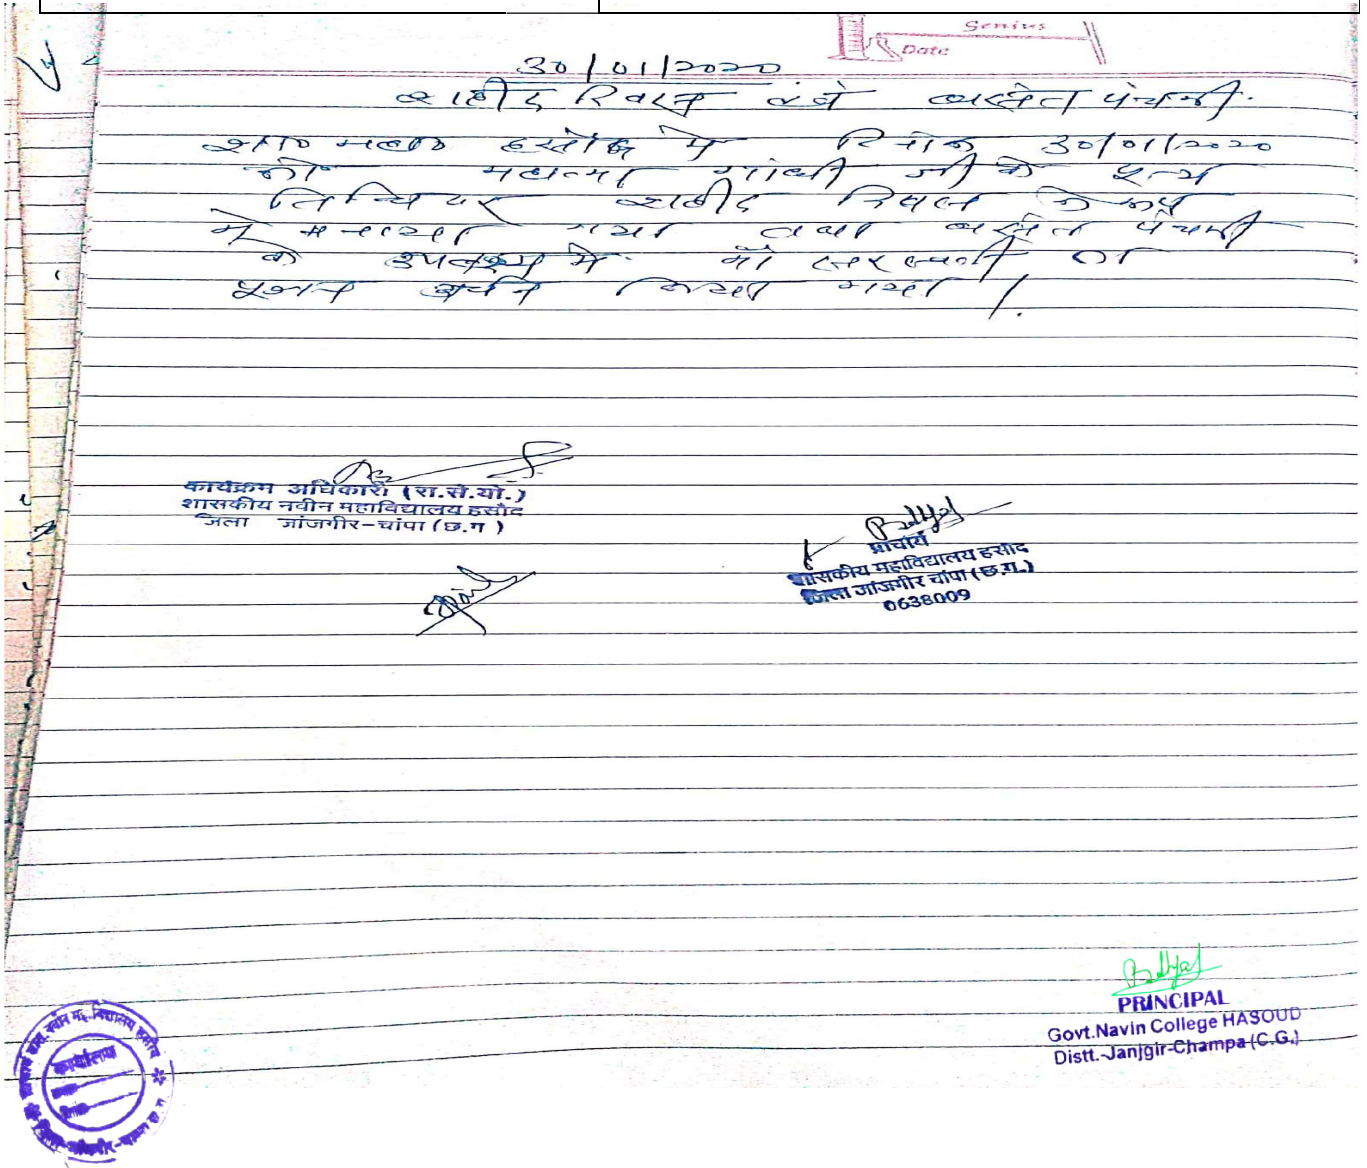 Genius
Date
30/01/2020
शहीद दिवस एवं बसंत पंचमी
शास० महा० हसौद में दिनांक 30/01/2020
को महात्मा गांधी जी के पुन्य
तिथि पर शहीद दिवस के रूप
में मनाया गया तथा बसंत पंचमी
के उपलक्ष्य में माँ सरस्वती का
पूजन अर्चन किया गया।
कार्यक्रम अधिकारी (रा.से.यो.)
शासकीय नवीन महाविद्यालय हसौद
जिला जांजगीर-चांपा (छ.ग)
प्राचार्य
शासकीय महाविद्यालय हसौद
जिला जांजगीर चांपा (छ.ग.)
0638009
PRINCIPAL
Govt.Navin College HASOUD
Distt.-Janjgir-Champa (C.G.)
कार्यालय